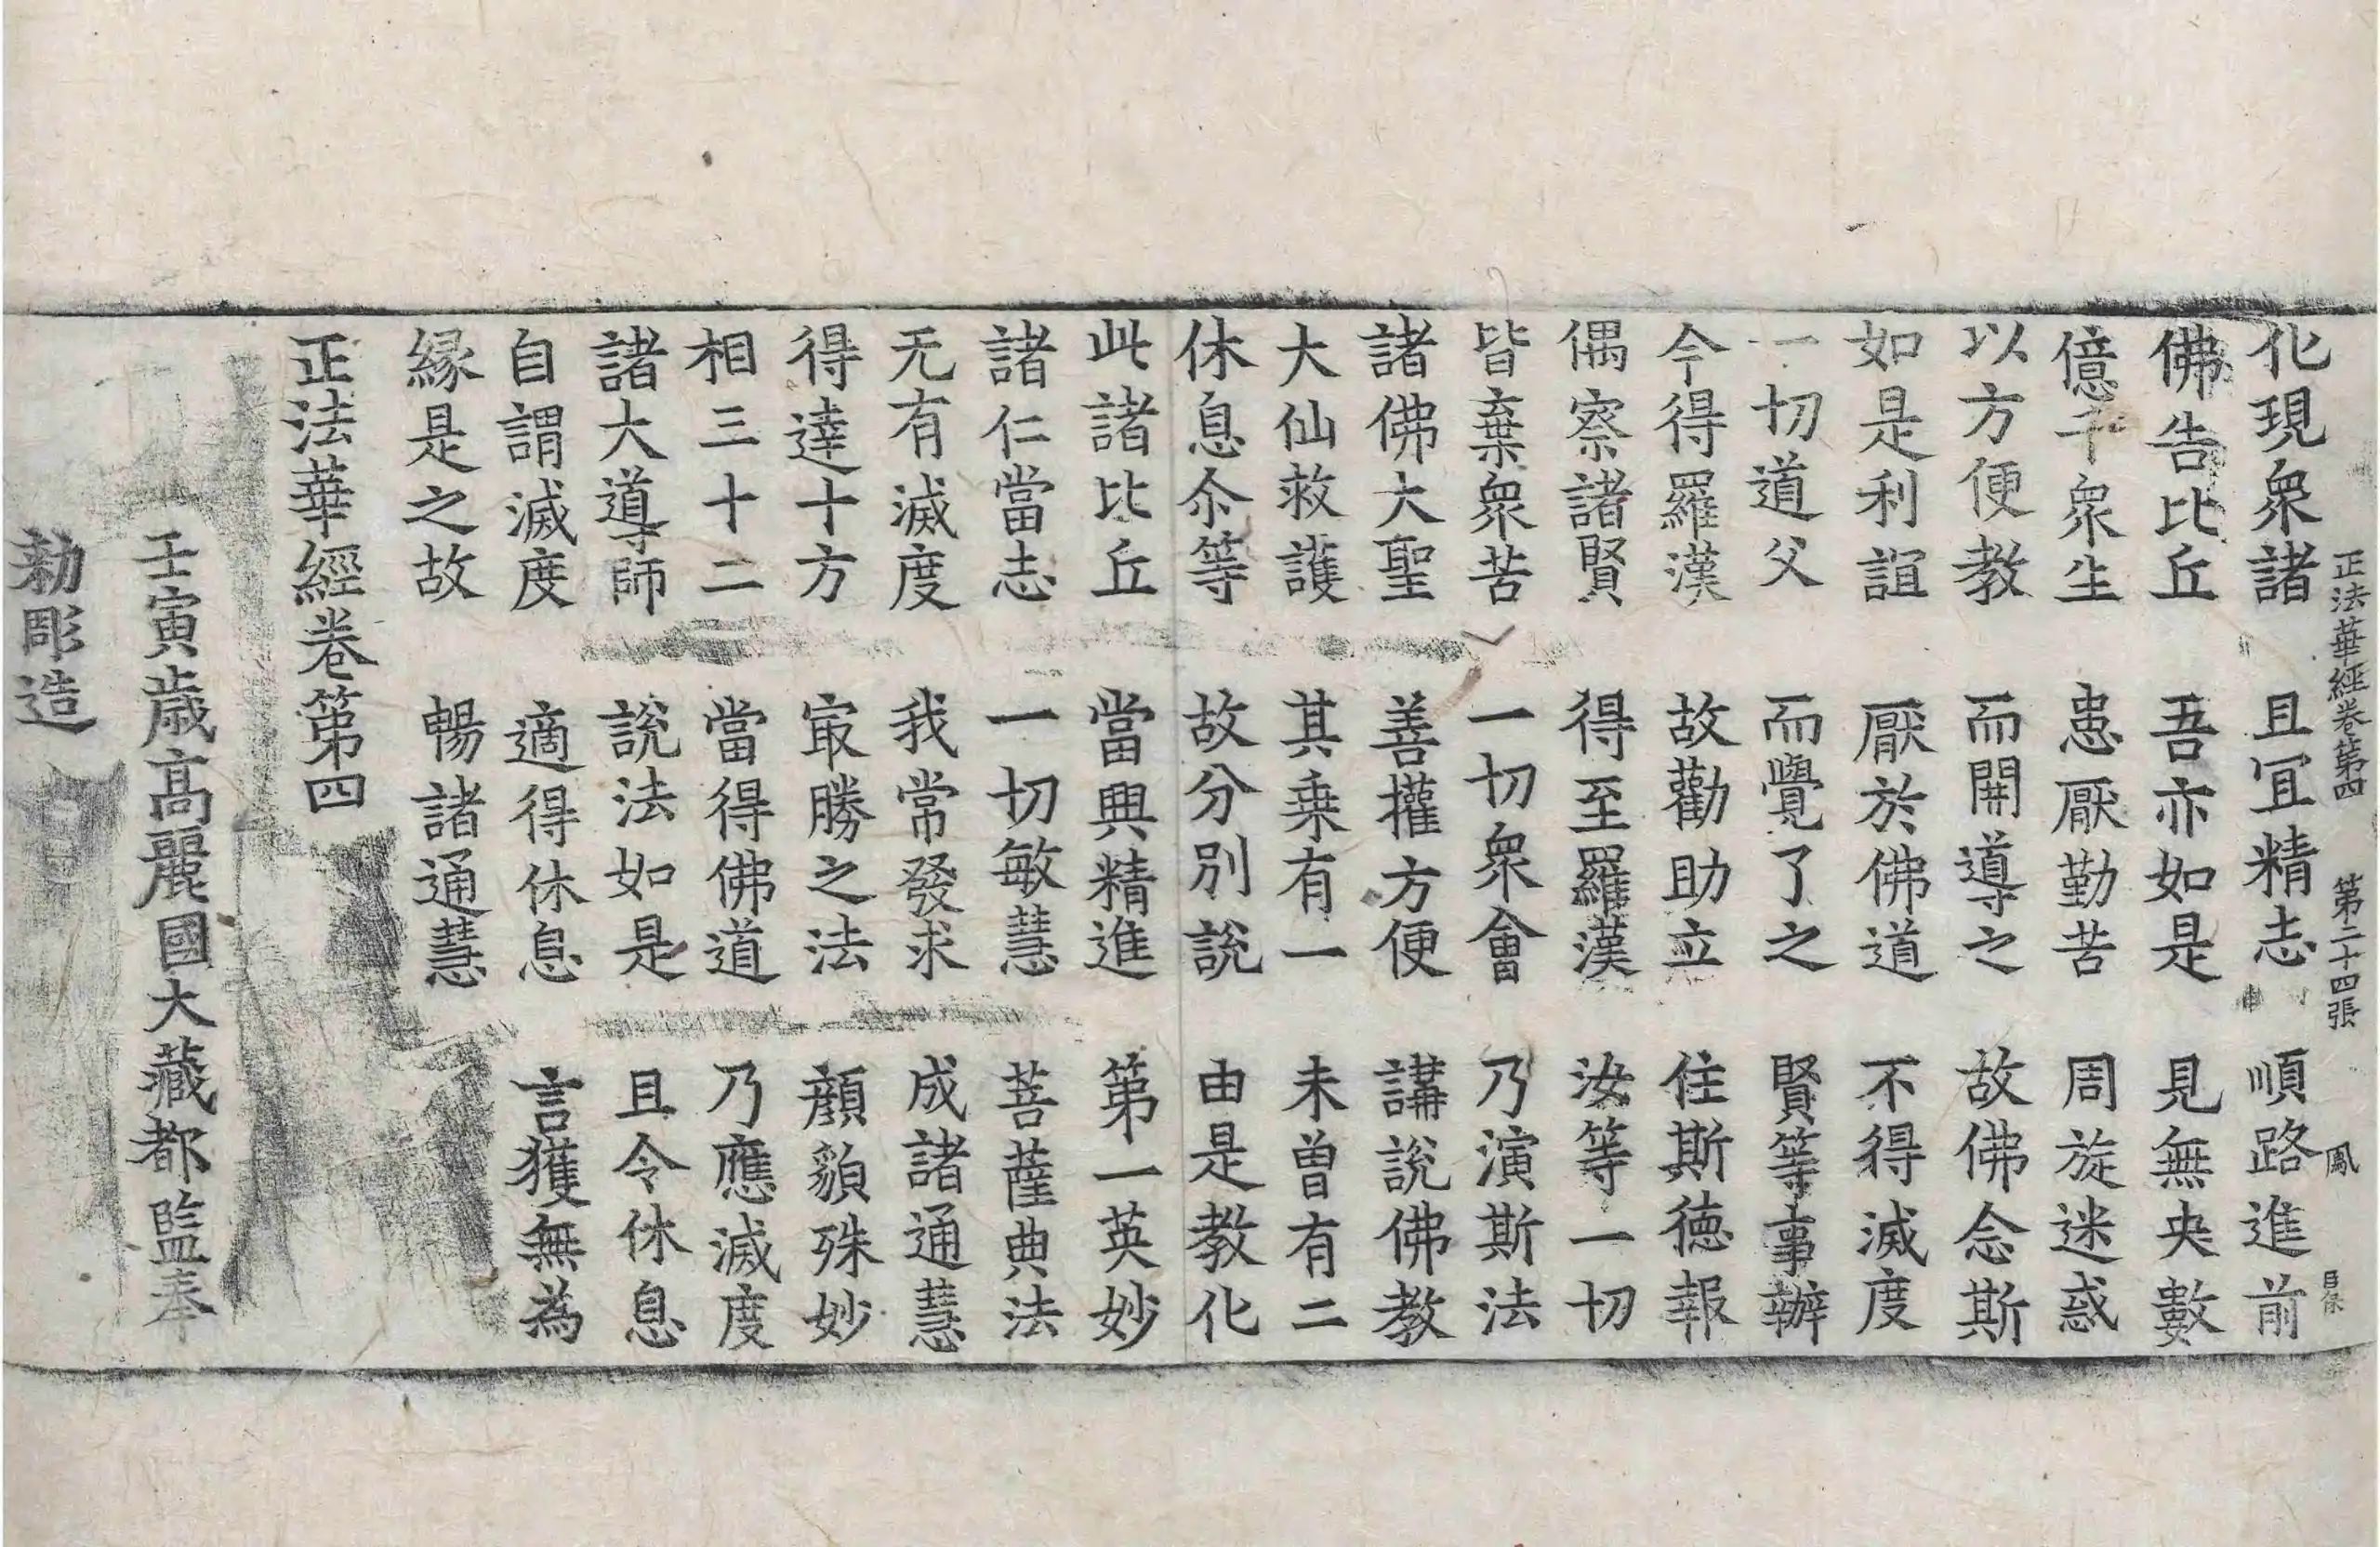 正法華經卷第四 第二十四張 鳳
化現衆諸 且宜精志 順路進前
佛告比丘 吾亦如是 見無央數
億千衆生 恚厭勤苦 周旋迷惑
以方便教 而開導之 故佛念斯
如是利誼 厭於佛道 不得滅度
一切道父 而覺了之 賢等事辦
今得羅漢 故勸助立 住斯德報
偶察諸賢 得至羅漢 汝等一切
皆棄衆苦 一切衆會 乃演斯法
諸佛大聖 善攉方便 講說佛教
大仙救護 其乗有一 未曾有二
休息尒等 故分別說 由是教化
此諸比丘 當興精進 第一英妙
諸仁當志 一切敏慧 菩薩典法
无有滅度 我常發求 成諸通慧
得達十方 㝡勝之法 顔貌殊妙
相三十二 當得佛道 乃應滅度
諸大導師 說法如是 且令休息
自謂滅度 適得休息 言獲無為
縁是之故 暢諸通慧
正法華經卷第四
壬寅歳髙麗國大藏都監奉
勑彫造